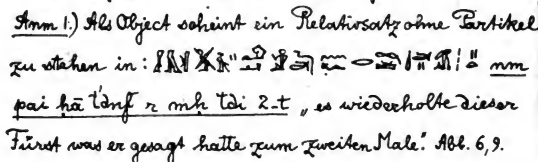 Anm 1:) Als Object scheint ein Relativsatz ohne Partikel
zu stehen in: nm
pai hā t'dnf r mh tdi 2-t „es wiederholte dieser
Fürst was er gesagt hatte zum zweiten Male." Abb. 6,9.